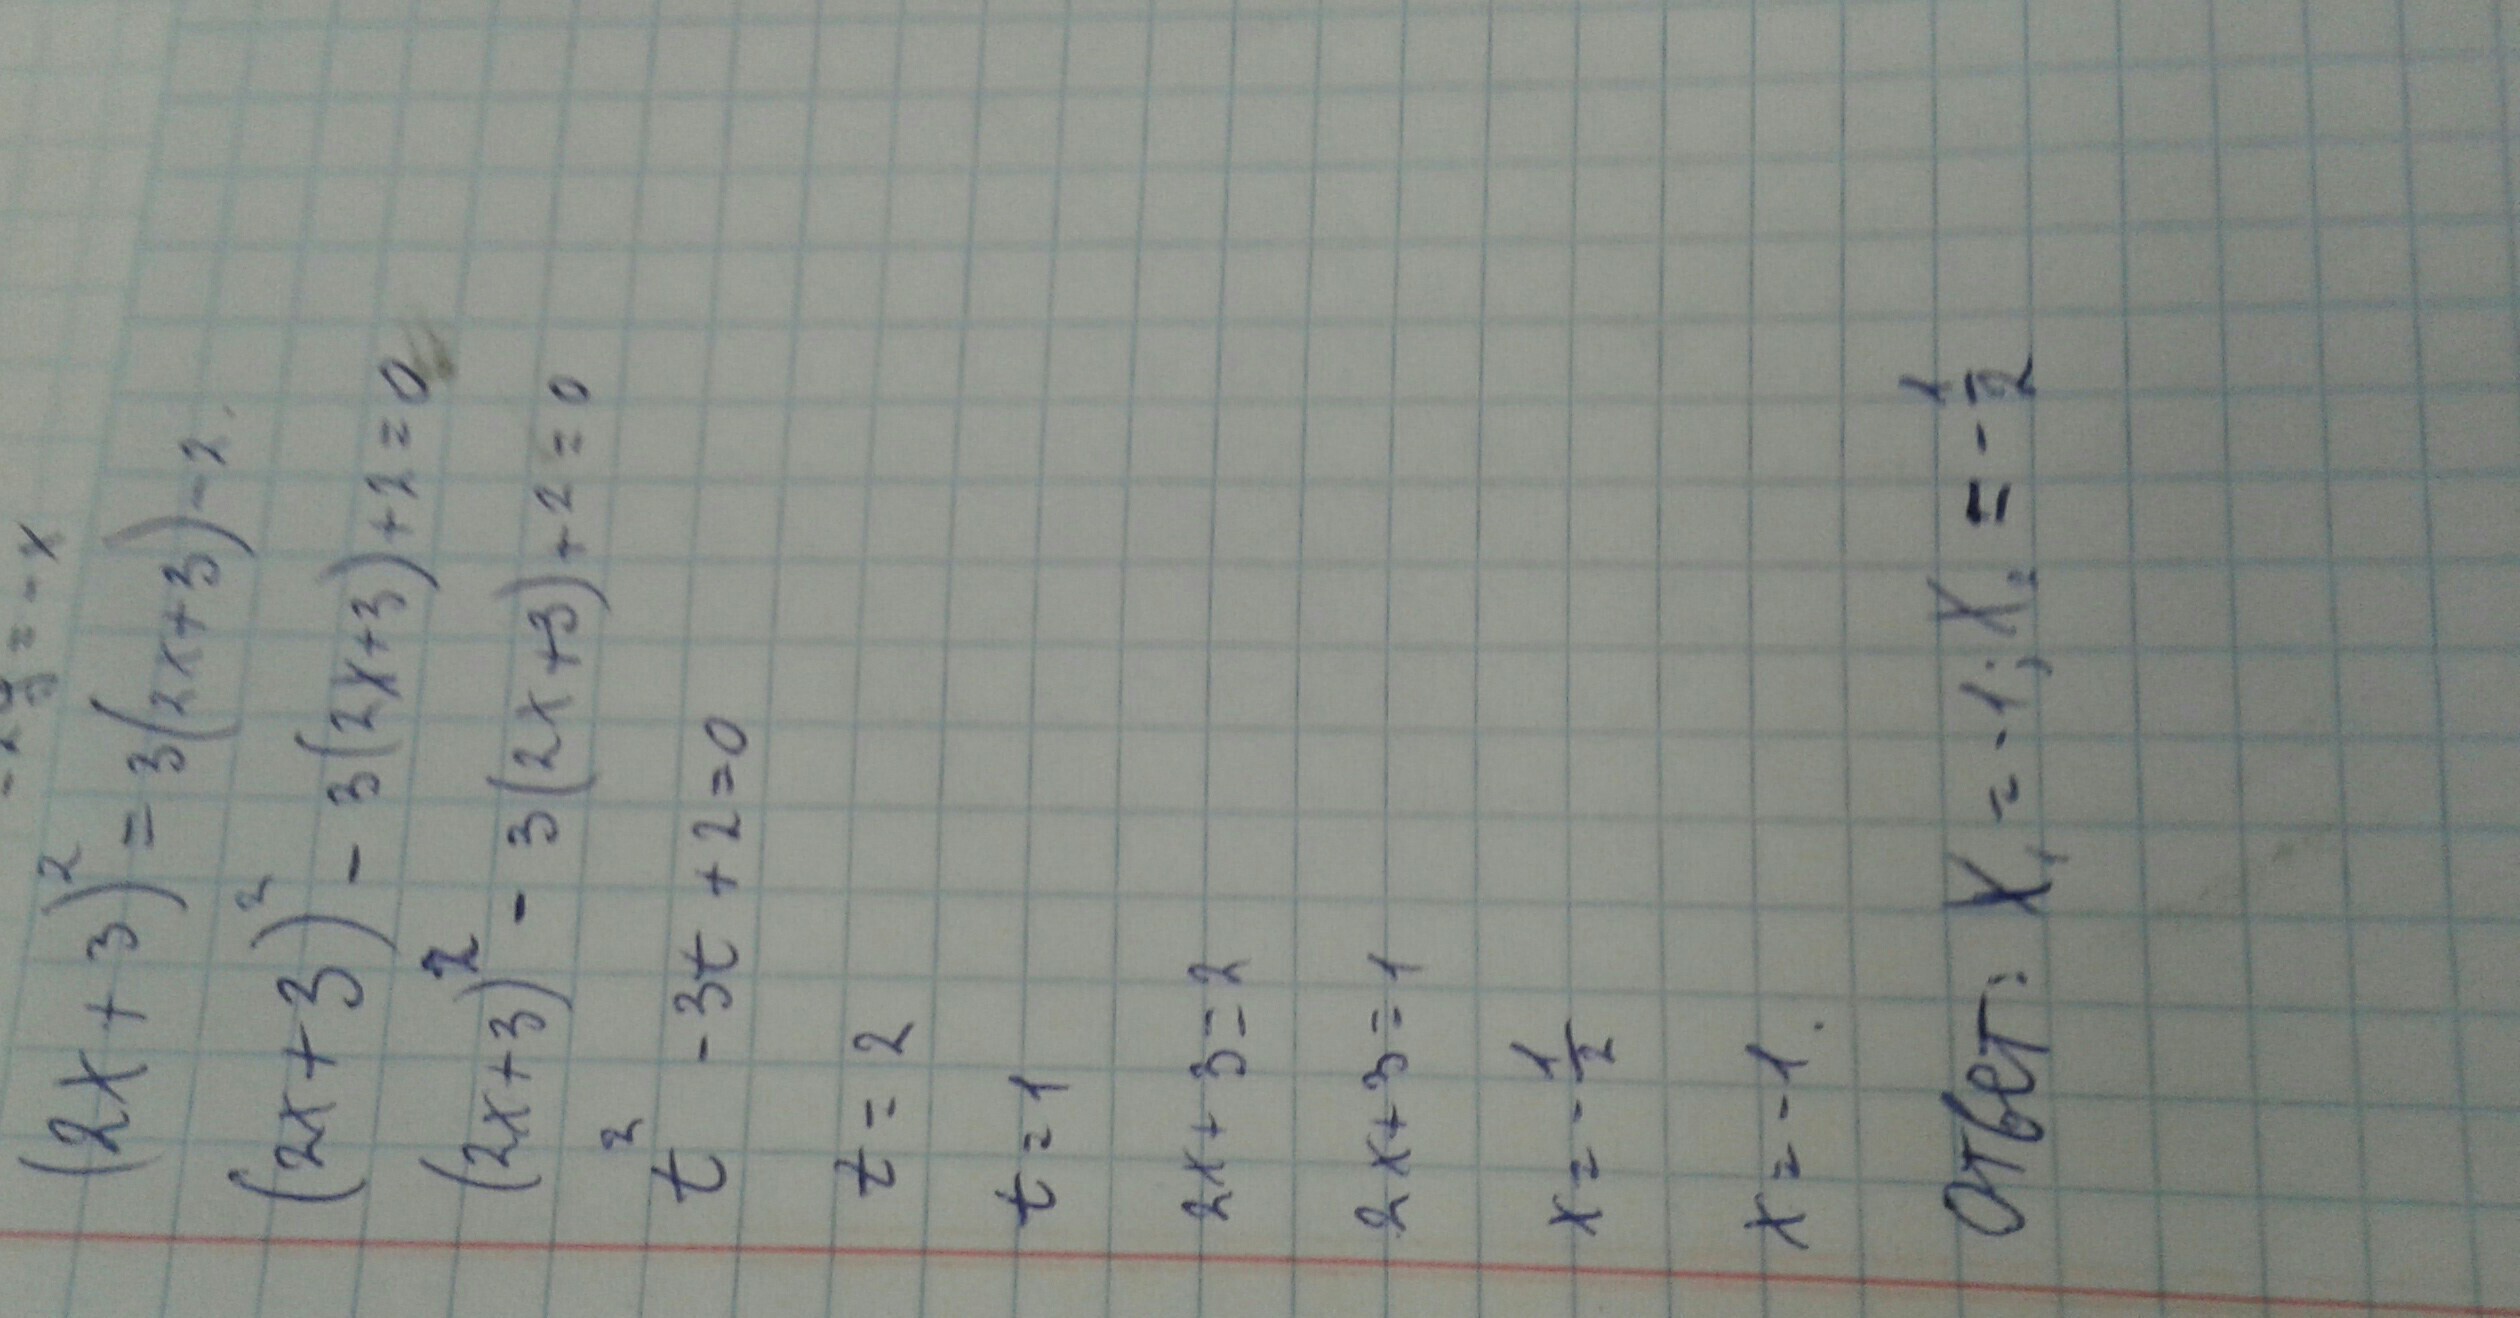 (2x+3)² = 3(2x+3) - 2.
(2x+3)² - 3(2x+3)+2=0
(2x+3)² - 3(2x+3)+2=0
t² - 3t + 2=0
t = 2
t = 1
2x+3=2
2x+3=1
x = -1/2
x = -1.
Ответ: X₁ = -1; X₂ = -1/2